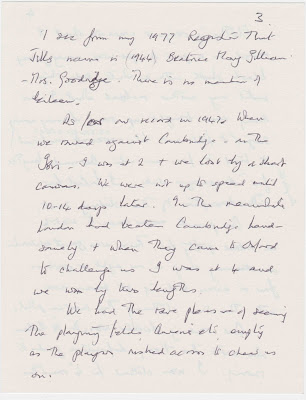 3.
I see from my 1977 Register that
Jill's name is (1944) Beatrice Mary Gillian
- Mrs. Goodridge. There is no mention of
Eileen.
As for our record in 1942, when
we rowed against Cambridge on the
Isis - I was at 2 & we lost by a short
canvas. We were not up to speed until
10-14 days later. In the meanwhile
London had beaten Cambridge hand-
somely & when they came to Oxford
to challenge us I was at 4 and
we won by two lengths.
We had the rare pleasure of seeing
the playing fields, tennis etc empty
as the players rushed across to cheer us
on.